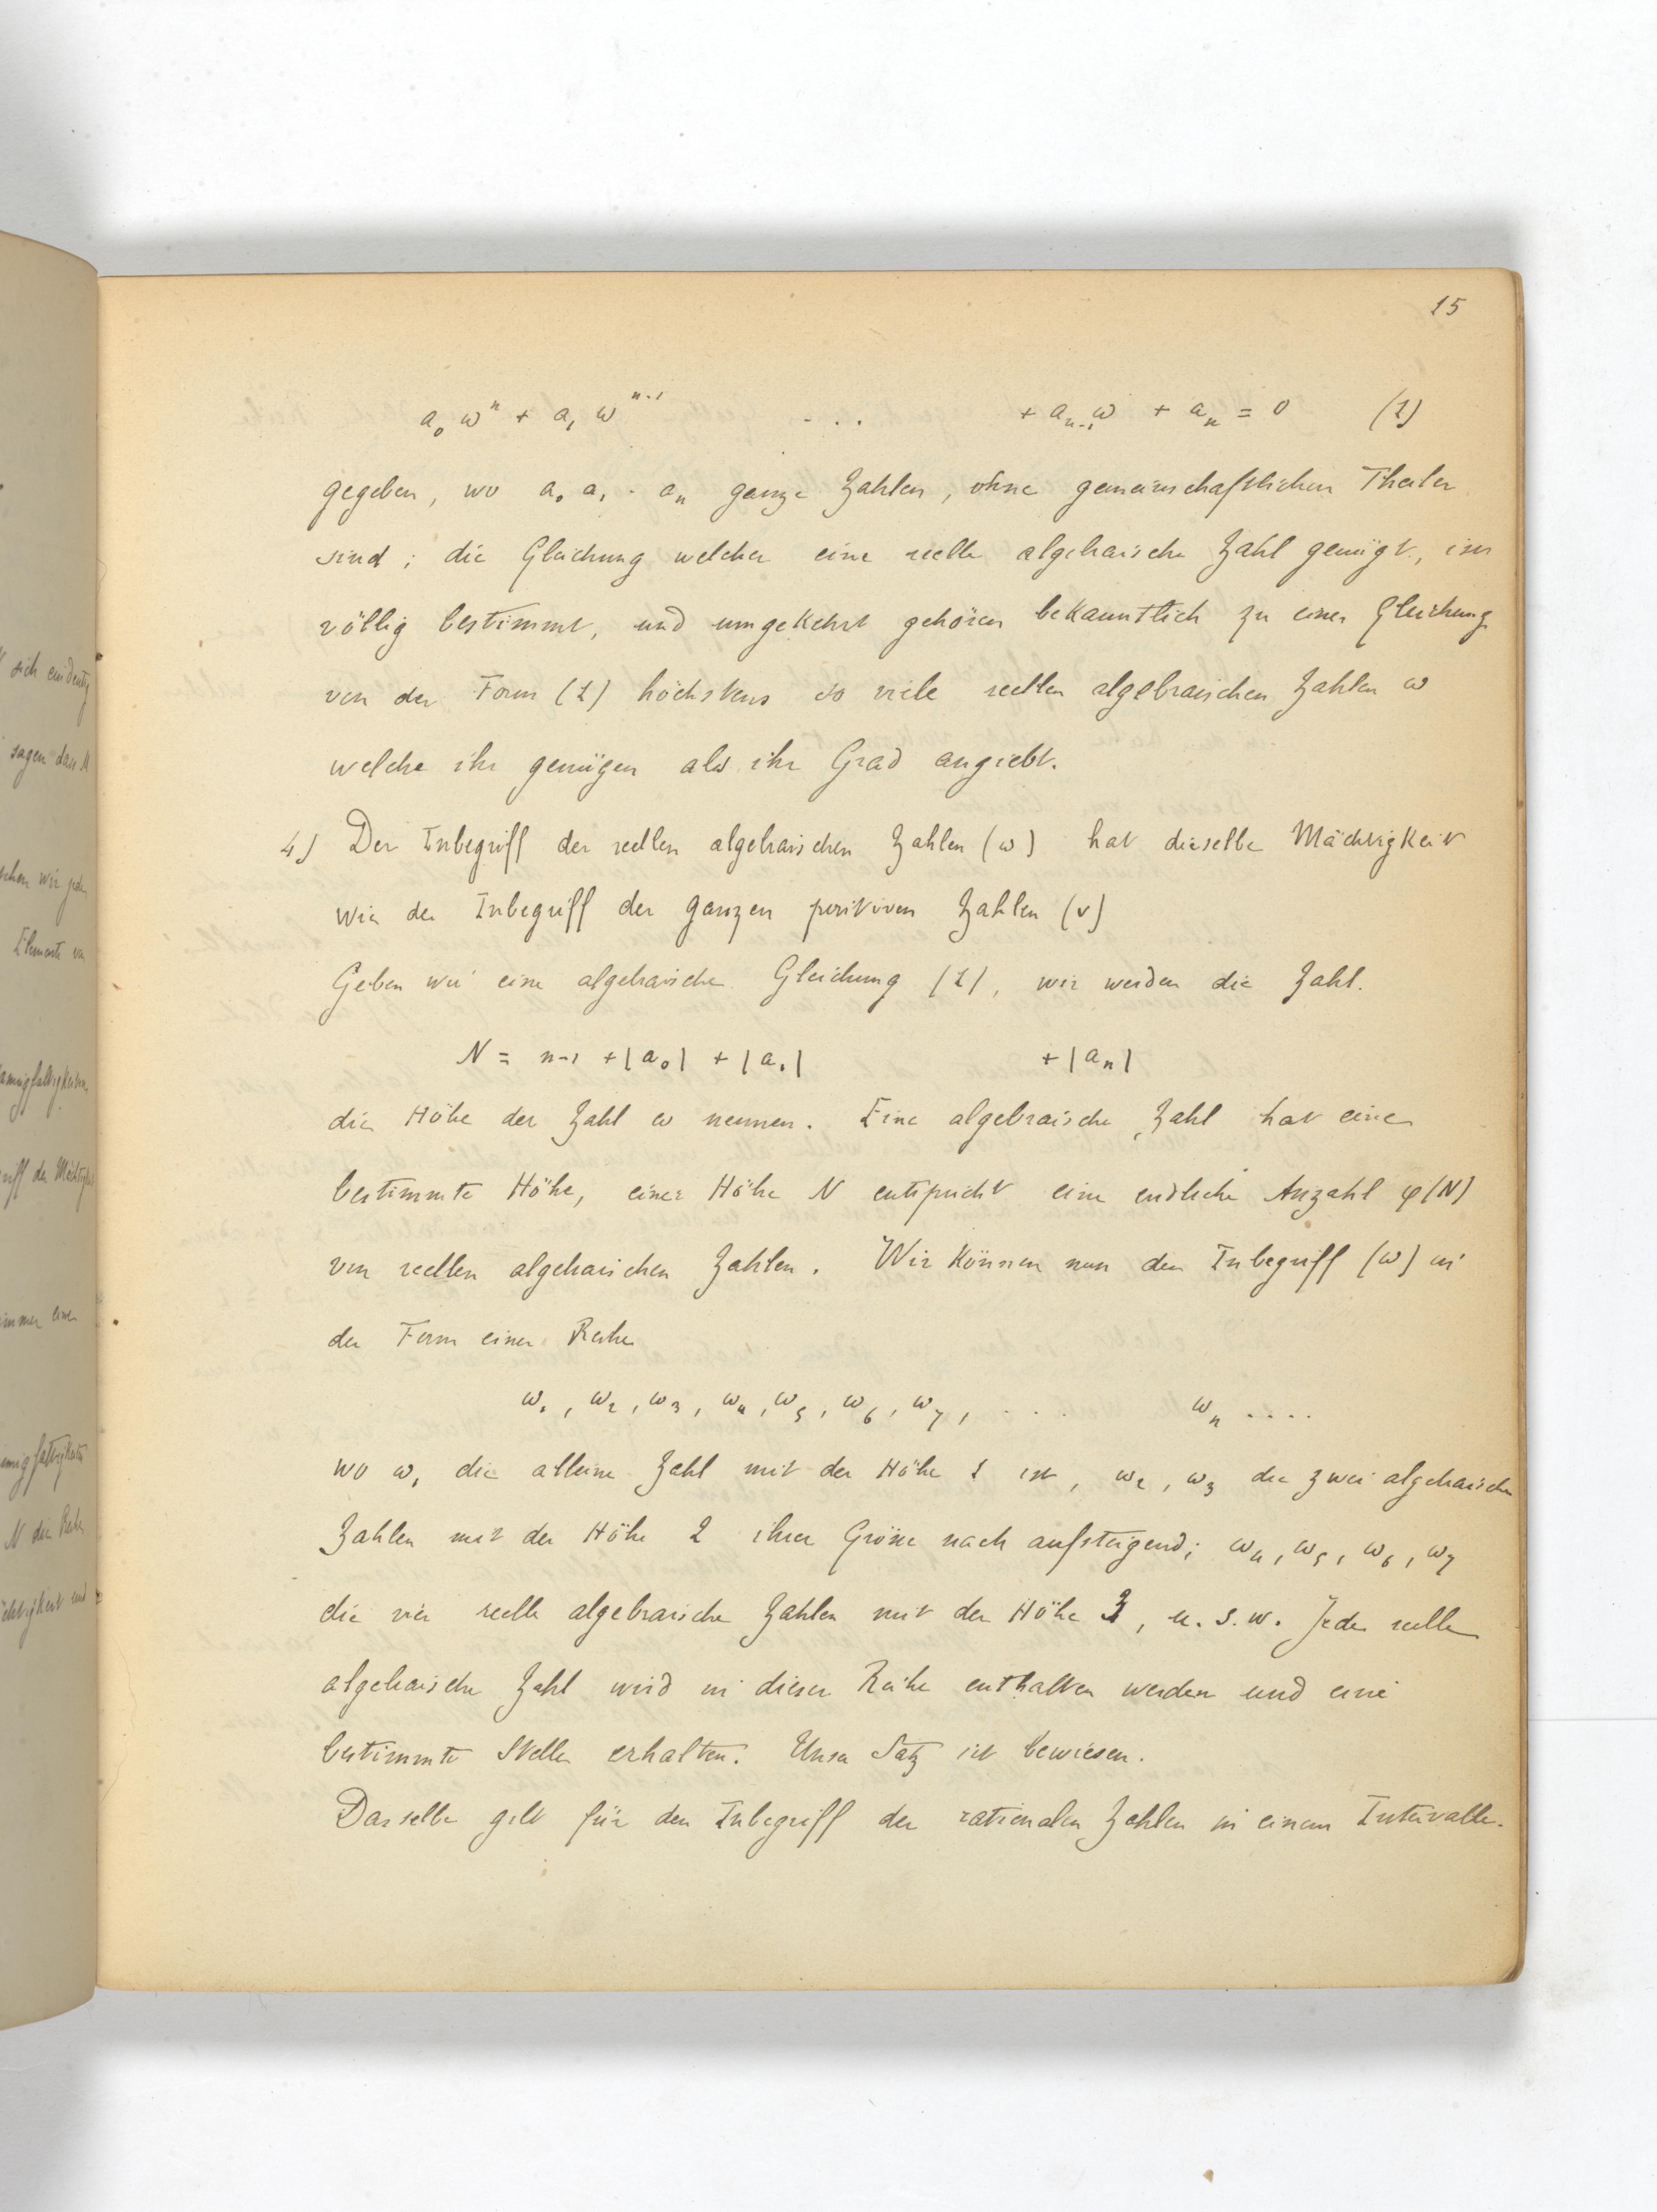 15
a₀ ωⁿ + a₁ ωⁿ⁻¹ . . . + aₙ₋₁ω + aₙ = 0 (1)
gegeben, wo a₀ a₁ . aₙ ganze Zahlen, ohne gemeinschaftlichen Theiler
sind; die Gleichung welcher eine reelle algebraische Zahl genügt, ist
völlig bestimmt, und umgekehrt gehören bekanntlich zu einer Gleichung
von der Form (1) höchstens so viele reellen algebraischen Zahlen ω
welche ihr genügen als ihr Grad angiebt.
4) Der Inbegriff der reellen algebraischen Zahlen (ω) hat dieselbe Mächtigkeit
wie der Inbegriff der ganzen positiven Zahlen (ν)
Geben wir eine algebraische Gleichung (1), wir werden die Zahl.
N = n-1 + |a₀| + |a₁| + |aₙ|
die Höhe der Zahl ω nennen. Eine algebraische Zahl hat eine
bestimmte Höhe, einer Höhe N entspricht eine endliche Anzahl φ(N)
von reellen algebraischen Zahlen. Wir können nun den Inbegriff (ω) in
der Form einer Reihe
ω₁, ω₂, ω₃, ω₄, ω₅, ω₆, ω₇, . . . ωₙ ....
wo ω₁ die alleine Zahl mit der Höhe 1 ist, ω₂, ω₃ die zwei algebraische
Zahlen mit der Höhe 2 ihrer Grösse nach aufsteigend; ω₄, ω₅, ω₆, ω₇
die vier reelle algebraische Zahlen mit der Höhe 3, u. s. w. Jede reelle
algebraische Zahl wird in dieser Reihe enthalten werden und eine
bestimmte Stelle erhalten. Unser Satz ist bewiesen.
Dasselbe gilt für den Inbegriff der rationalen Zahlen in einem Intervalle.
sich eindeutig
sagen dass M
wir jeden
Elemente
immer einen
N die Reihe
und